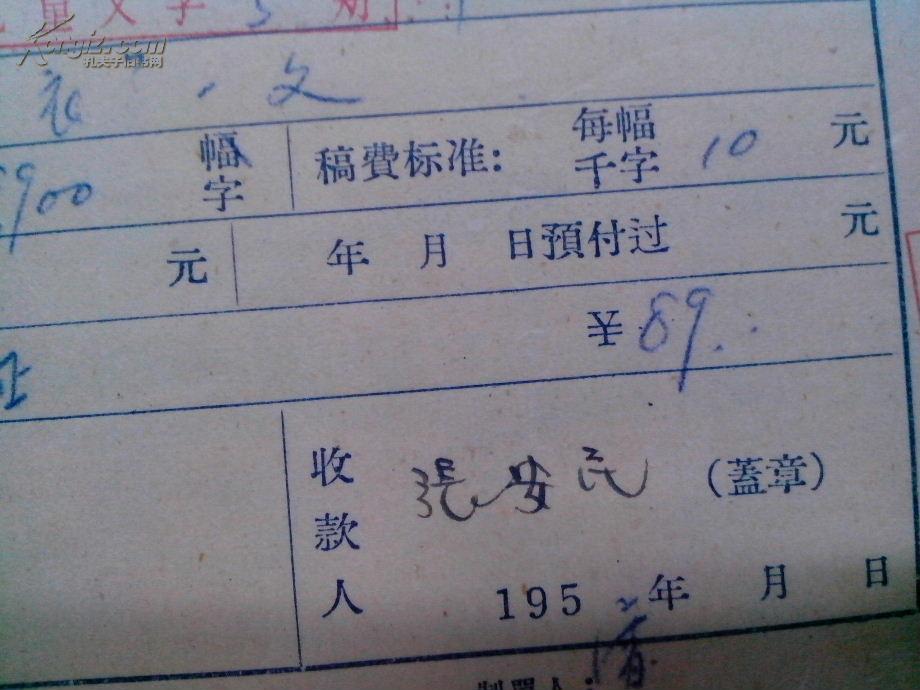 童文学
Kongfz.com
孔夫子旧书网
文
900 幅字 稿費标准: 每幅千字 10 元
元 年 月 日預付过 元
¥89..
收款人 張安民 (蓋章)
195 年 月 日
制單人: